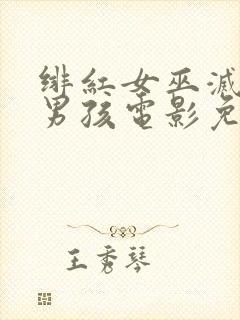 绯紅女巫滅
男孩電影免
王秀琴